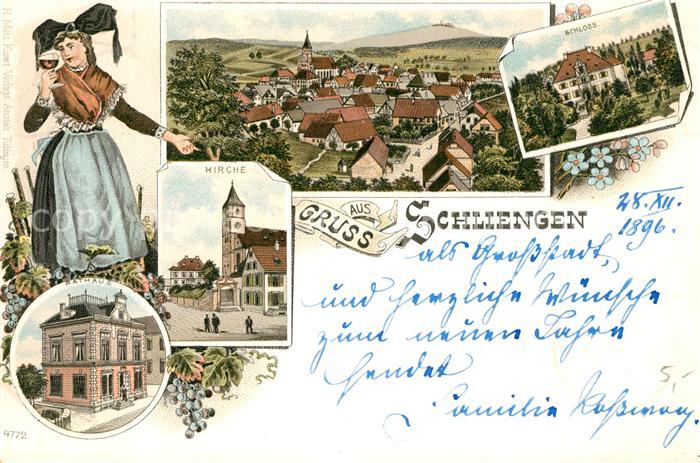 H. Metz, Kunst-Verlags-Anstalt, Tübingen.
SCHLOSS
KIRCHE
RATHAUS
GRUSS AUS SCHLIENGEN
28. XII.
1896.
als Großstadt,
und herzliche Wünsche
zum neuen Jahre
sendet
Familie
5,-
4772